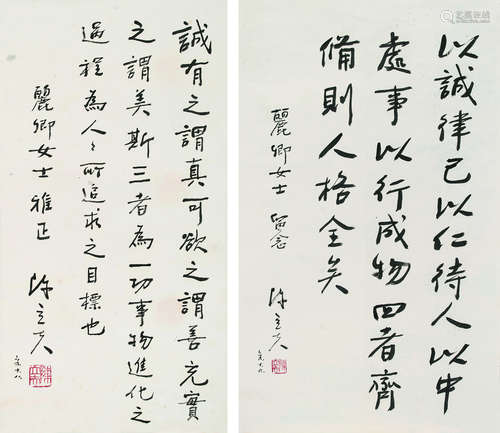 以誠律己以仁待人以中
處事以行成物四者齊
備則人格全矣
麗卿女士 留念
陳立夫
誠有之謂真可欲之謂善充實
之謂美斯三者為一切事物進化之
過程為人人所追求之目標也
麗卿女士雅正
陳立夫